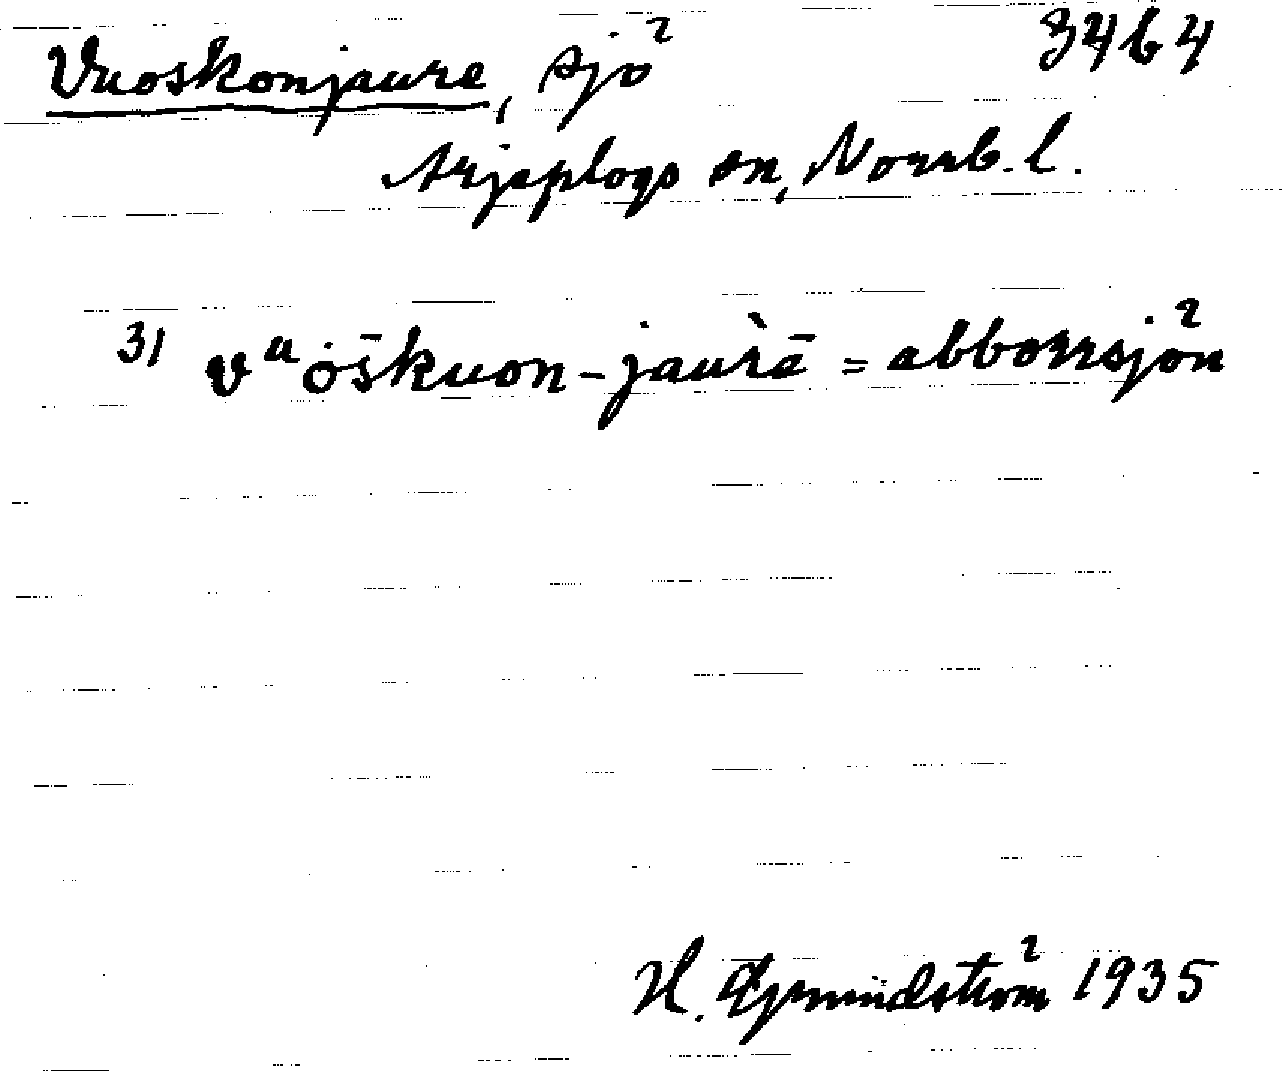 Vuoskonjaure, sjö 3464
Arjeplogs sn, Norrb. l.
31 vᵘȯšk̄uon-jaur̀ē = abborrsjön
H. Grundström 1935